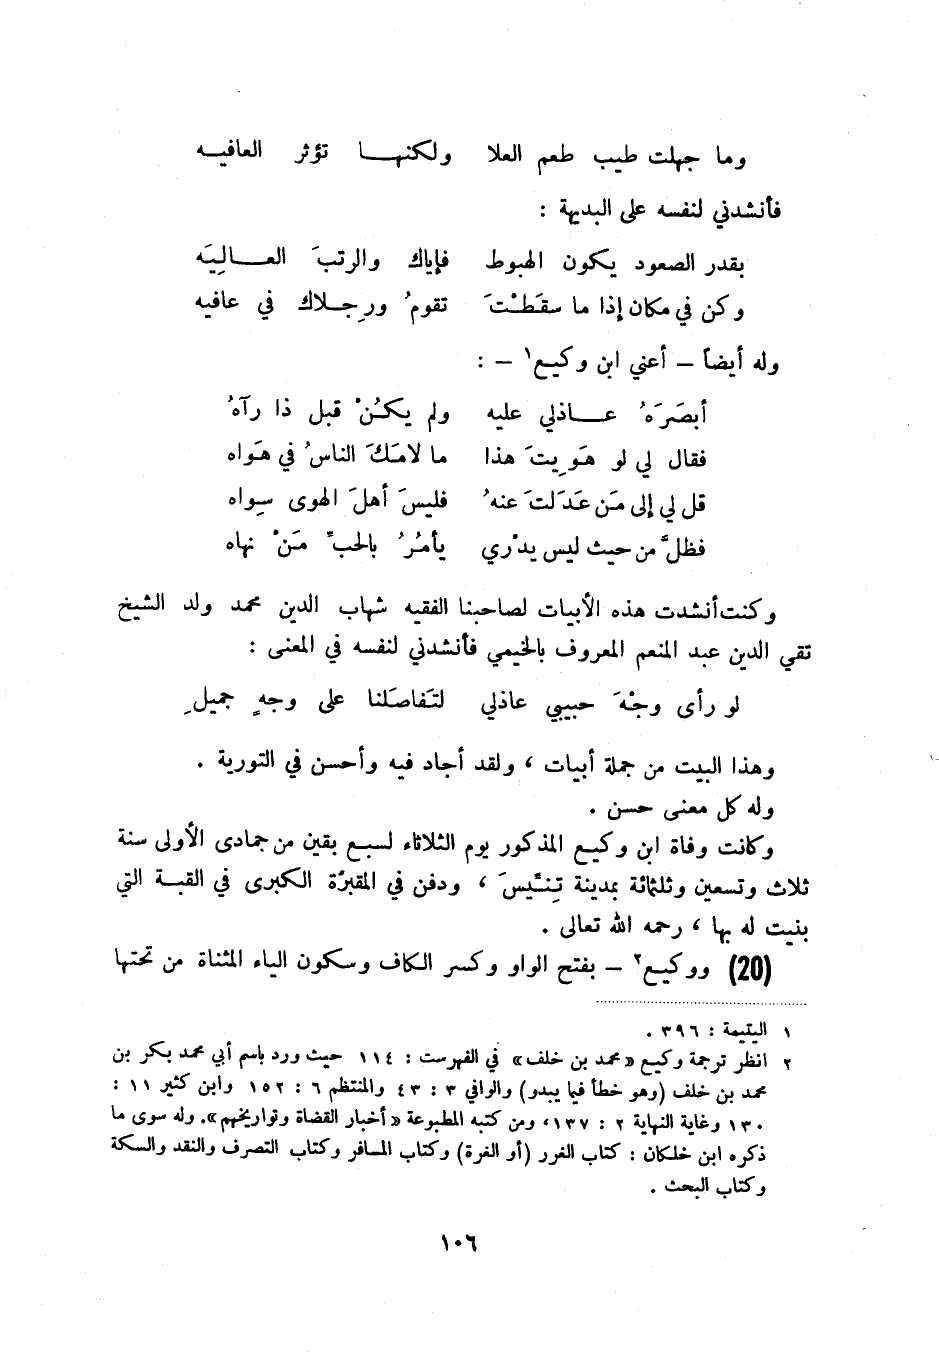 وما جهلت طيب طعم العلا ولكنهـــا تؤثر العافيـــه
فأنشدني لنفسه على البديهة :
بقدر الصعود يكون الهبوط فإياك والرتبَ العـــالِيَه
وكن في مكان إذا ما سقَطْتَ تقومُ ورِجـــلاك في عافيه
وله أيضاً – أعني ابن وكيع١ – :
أبصَرَهُ عـــاذلي عليه ولم يكُنْ قبل ذا رآهُ
فقال لي لو هَوِيتَ هذا ما لامَكَ الناسُ في هَواه
قل لي إلى مَن عَدَلتَ عنهُ فليسَ أهلَ الهوى سِواه
فظلَّ من حيث ليس يدْري يأمُرُ بالحبِّ مَنْ نهاه
وكنت أنشدت هذه الأبيات لصاحبنا الفقيه شهاب الدين محمد ولد الشيخ
تقي الدين عبد المنعم المعروف بالخيمي فأنشدني لنفسه في المعنى :
لو رأى وجْهَ حبيبي عاذلي لتَفاصَلنا على وجهٍ جميلِ
وهذا البيت من جملة أبيات ، ولقد أجاد فيه وأحسن في التورية .
وله كل معنى حسن .
وكانت وفاة ابن وكيع المذكور يوم الثلاثاء لسبع بقين من جمادى الأولى سنة
ثلاث وتسعين وثلثمائة بمدينة تِنِّيسَ ، ودفن في المقبرة الكبرى في القبـة التي
بنيت له بها ، رحمه الله تعالى .
(20) ووكيع٢ – بفتح الواو وكسر الكاف وسكون الياء المثناة من تحتها
١ اليتيمة : ٣٩٦ .
٢ انظر ترجمة وكيع «محمد بن خلف» في الفهرست : ١١٤ حيث ورد باسم أبي محمد بكر بن
محمد بن خلف (وهو خطأ فيما يبدو) والوافي ٣ : ٤٣ والمنتظم ٦ : ١٥٢ وابن كثير ١١ :
١٣٠ وغاية النهاية ٢ : ١٣٧، ومن كتبه المطبوعة «أخبار القضاة وتواريخهم». وله سوى ما
ذكره ابن خلكان : كتاب الغرر (أو الغرة) وكتاب المسافر وكتاب التصرف والنقد والسكة
وكتاب البحث .
١٠٦